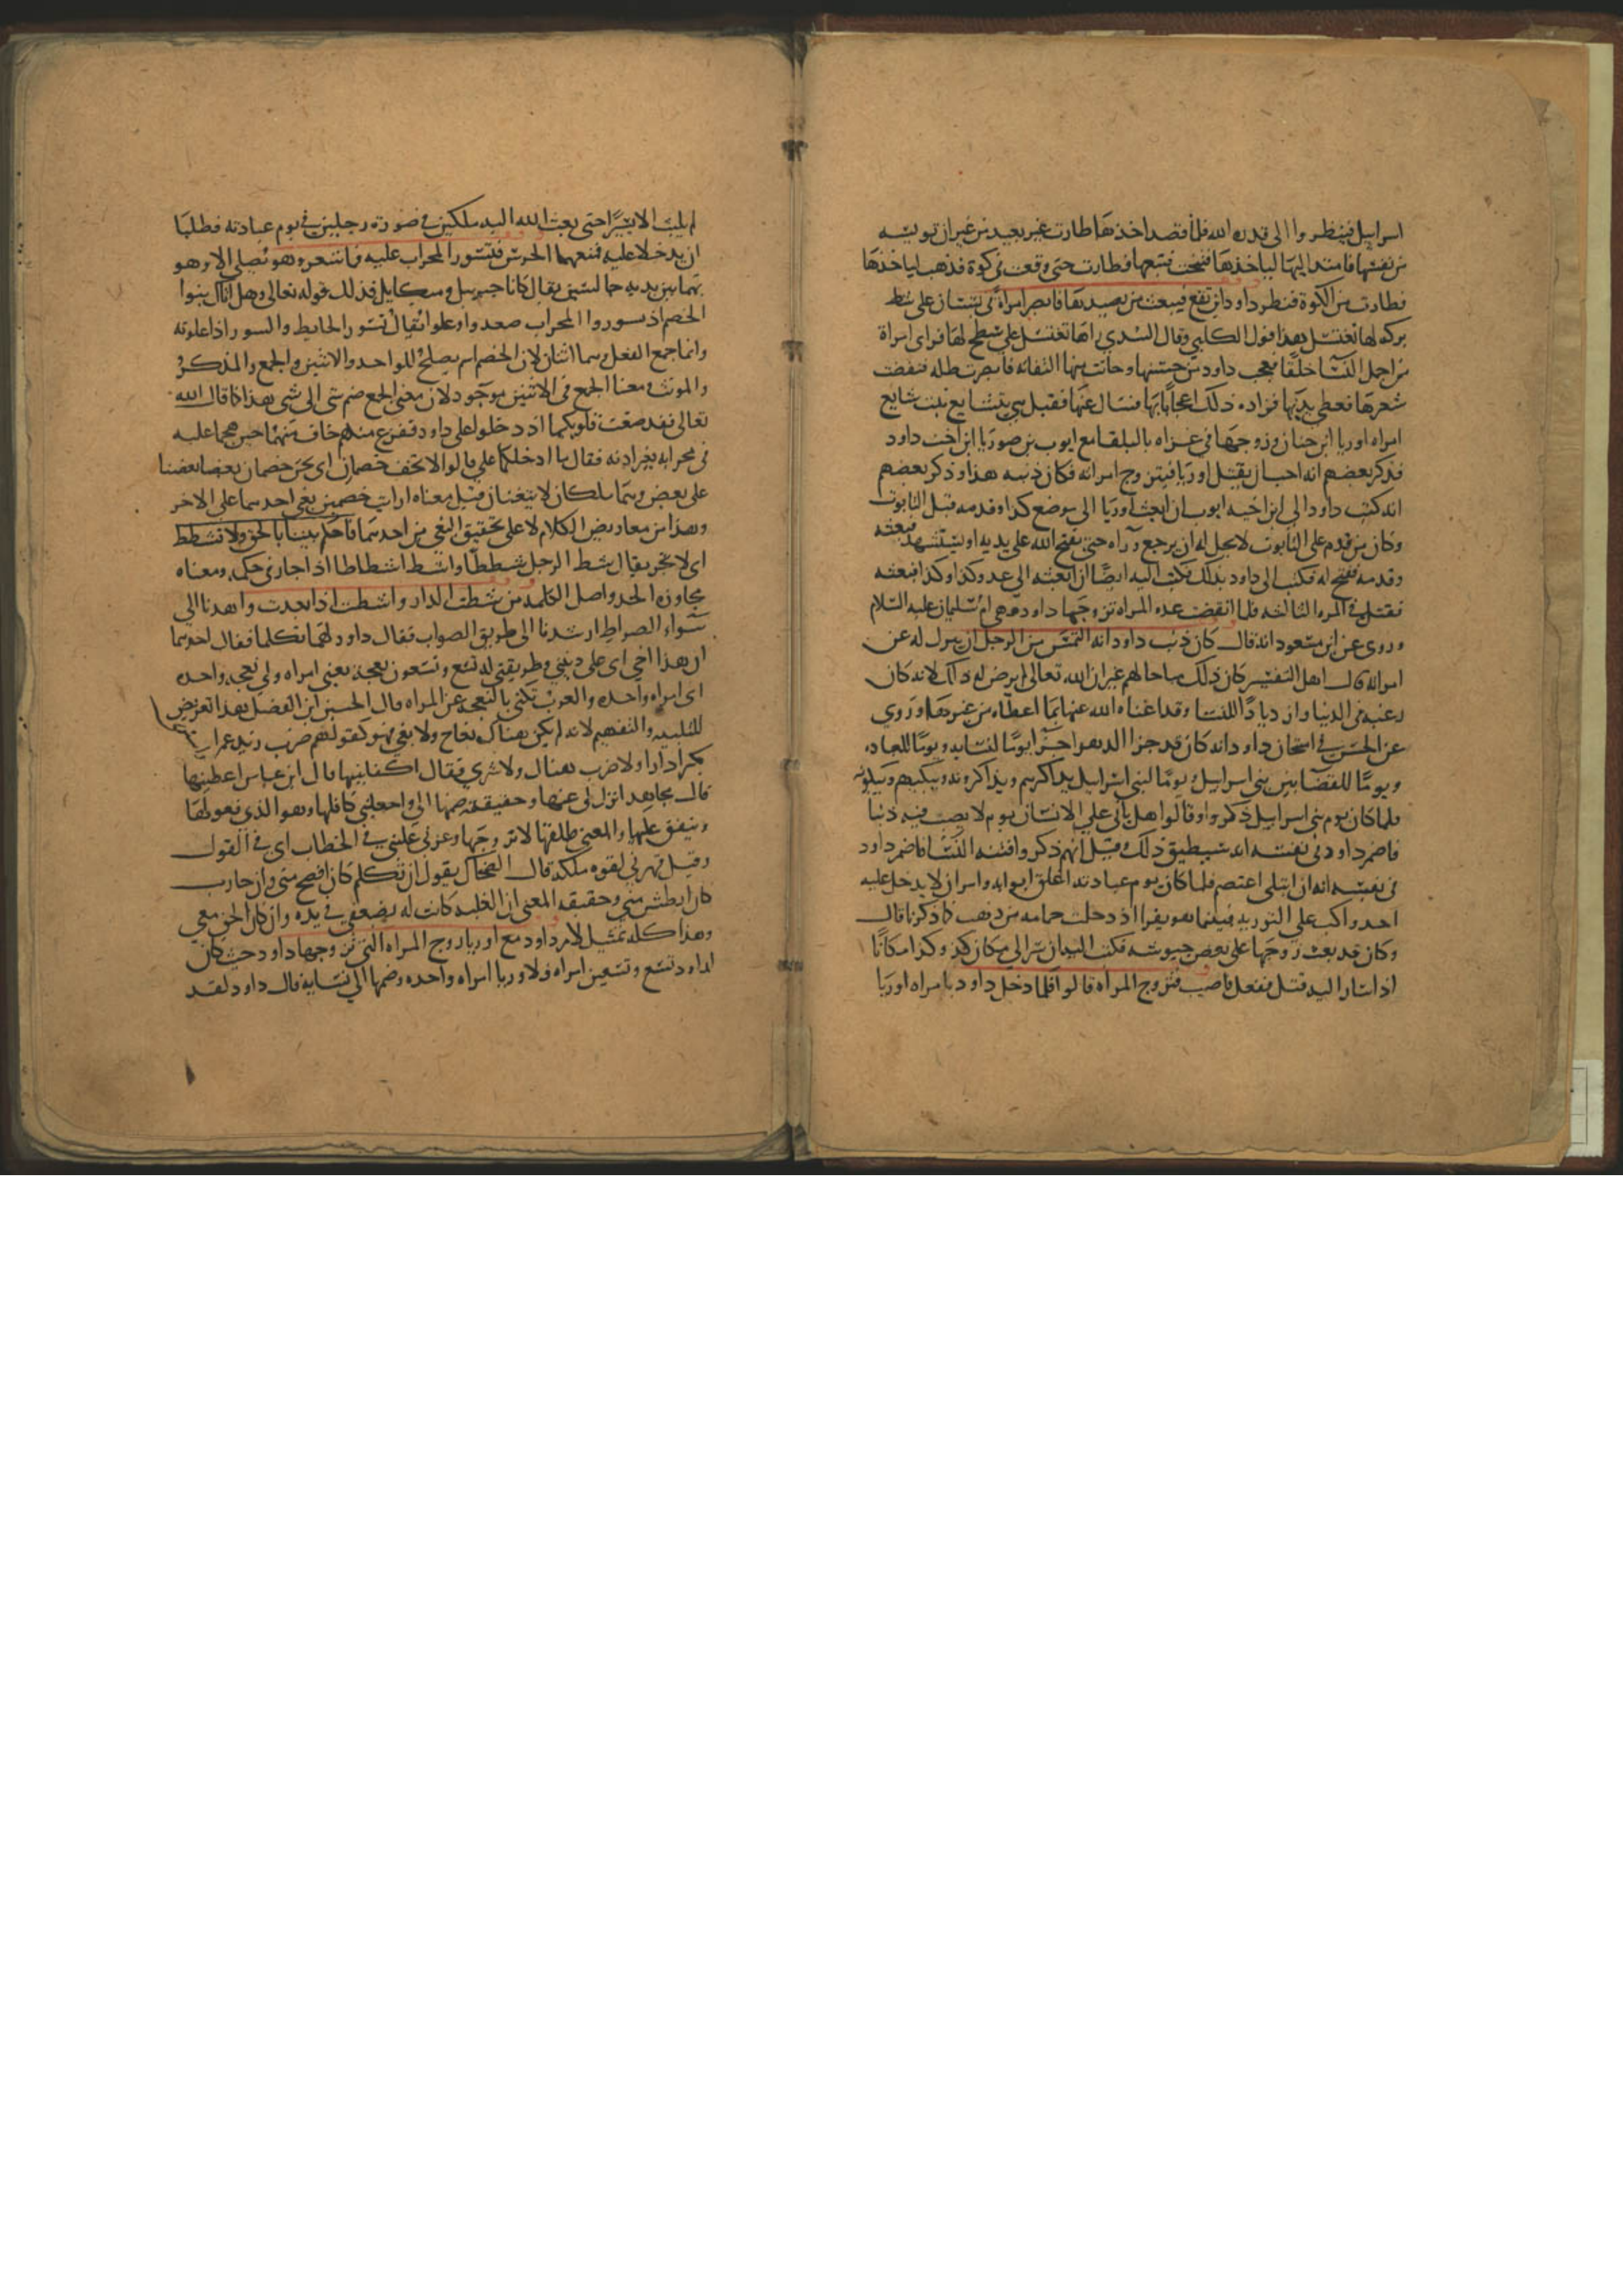 اسرايل فينظروا الى قدره الله فلما قصد اخذها طارت غير بعيد من غير ان تويسه
من نفسها فامتد اليها لياخذها فتنحت فتبعها فطارت حتى وقعت في كوة فذهب لياخذها
فطارت من الكوة فنظر داود اين تقع فيبعث من يصيدها فابصر امراة في بستان على شط
بركه لها تغتسل هذا قول الكلبي وقال السدي راها تغتسل على سطح لها فراى امراة
من اجمل النسا خلقا فعجب داود من حسنها وحانت منها التفاته فابصرت ظله فنفضت
شعرها فغطى بدنها فزاده ذلك اعجابا بها فسال عنها فقيل هي بتشايع بنت شايع
امراه اوريا ابن حنان وزوجها في غزاه بالبلقا مع ايوب بن صوريا ابن اخت داود
فذكر بعضهم انه احب ان يقتل اوريا فيتزوج امراته فكان ذنبه هذا وذكر بعضهم
انه كتب داود الى ابن اخيه ايوب ان ابعث اوريا الى موضع كذا وقدمه قبل التابوت
وكان من قدم على التابوت لا يحل له ان يرجع وراه حتى يفتح الله على يديه او يستشهد فبعثه
وقدمه ففتح له فكتب الى داود بذلك فكتب اليه ايضا ان ابعثه الى عدو كذا وكذا فبعثه
فقتل في المره الثالثه فلما انقضت عده المراه تزوجها داود فهي ام سليمان عليه السلام
وروى عن ابن مسعود انه قال كان ذنب داود انه التمس من الرجل ان ينزل له عن
امراته قال اهل التفسير كان ذلك مباحا لهم غير ان الله تعالى لم يرض له ذلك لانه كان
رغبه في الدنيا وازديادا للنسا وقد اغناه الله عنها بما اعطاه من غيرها وروي
عن الحسن في امتحان داود انه كان قد جزا الدهر اجزا يوما لنسايه ويوما للعباده
ويوما للقضا بين بني اسرايل ويوما لبني اسرايل يذاكرهم ويذاكرونه ويبكيهم ويبكونه
فلما كان يوم بني اسرايل ذكروا وقالوا هل ياتى على الانسان يوم لا يصيب فيه ذنبا
فاضمر داود في نفسه انه سيطيق ذلك وقيل انهم ذكروا فتنه النسا فاضمر داود
في نفسه انه ان ابتلى اعتصم فلما كان يوم عبادته اغلق ابوابه وامر ان لا يدخل عليه
احد واكب على التوريه فبينما هو يقرا اذ دخلت حمامه من ذهب كما ذكرنا قال
وكان قد بعث زوجها على بعض جيوشه فكتب اليه ان سر الى مكان كذا وكذا مكانا
اذا سار اليه قتل ففعل فاصيب فتزوج المراه قالوا فلما دخل داود بامراه اوريا
لم يلبث الا يسيرا حتى بعث الله اليه ملكين في صوره رجلين في يوم عبادته فطلبا
ان يدخلا عليه فمنعهما الحرس فتسورا المحراب عليه فما شعر وهو يصلي الا وهو
بهما بين يديه جالسين يقال كانا جبريل وميكايل فذلك قوله تعالى وهل اتاك نبوا
الخصم اذ تسوروا المحراب صعدوا وعلوا يقال تسورت الحايط والسور اذا علوته
وانما جمع الفعل وهما اثنان لان الخصم اسم يصلح للواحد والاثنين والجمع والمذكر
والمونث ومعنا الجمع في الاثنين موجود لان معنى الجمع ضم شى الى شى هذا كما قال الله
تعالى فقد صغت قلوبكما اذ دخلوا على داود ففزع منهم خاف منهما حين هجما عليه
في محرابه بغير اذنه فقال ما ادخلكما علي قالوا لا تخف خصمان اى نحن خصمان بغى بعضنا
على بعض وهما ملكان لا يبغيان قيل معناه ارايت خصمين بغى احدهما على الاخر
وهذا من معاريض الكلام لا على تحقيق البغي من احدهما فاحكم بيننا بالحق ولا تشطط
اى لا تجر يقال شط الرجل شططا واشط اشطاطا اذا جار في حكمه ومعناه
مجاوزه الحد واصل الكلمه من شطت الدار واشطت اذا بعدت واهدنا الى
سواء الصراط ارشدنا الى طريق الصواب فقال داود لهما تكلما فقال احدهما
ان هذا اخي اى على ديني وطريقتي له تسع وتسعون نعجه يعني امراه ولي نعجه واحده
اى امراه واحده والعرب تكنى بالنعجه عن المراه قال الحسين ابن الفضل هذا تعريض
للتنبيه والتفهيم لانه لم يكن هناك نعاج ولا بغي فهو كقولهم ضرب زيد عمرا
بكر دارا ولا ضرب هنال ولا شرى فقال اكفلنيها قال ابن عباس اعطنيها
قال مجاهد انزل لى عنها وحقيقته ضمها الي واجعلني كافلها وهو الذي يعولها
وينفق عليها والمعنى طلقها لاتزوجها وعزني غلبني في الخطاب اى في القول
وقيل قهرني لقوه ملكه قال الضحاك يقول ان تكلم كان افصح منى وان حارب
كان ابطش مني وحقيقه المعنى ان الغلبه كانت له بضعفي في يده وان كان الحق معي
وهذا كله تمثيل لامر داود مع اوريا زوج المراه التى تزوجها داود حيث كان
لداود تسع وتسعين امراه ولاوريا امراه واحده وضمها الى نسايه قال داود لقد